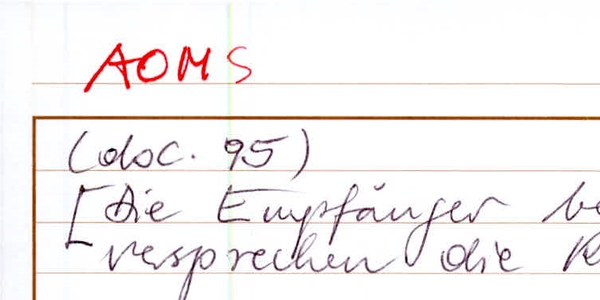 AOMS
(doc. 95)
[Die Empfänger be
versprechen die R